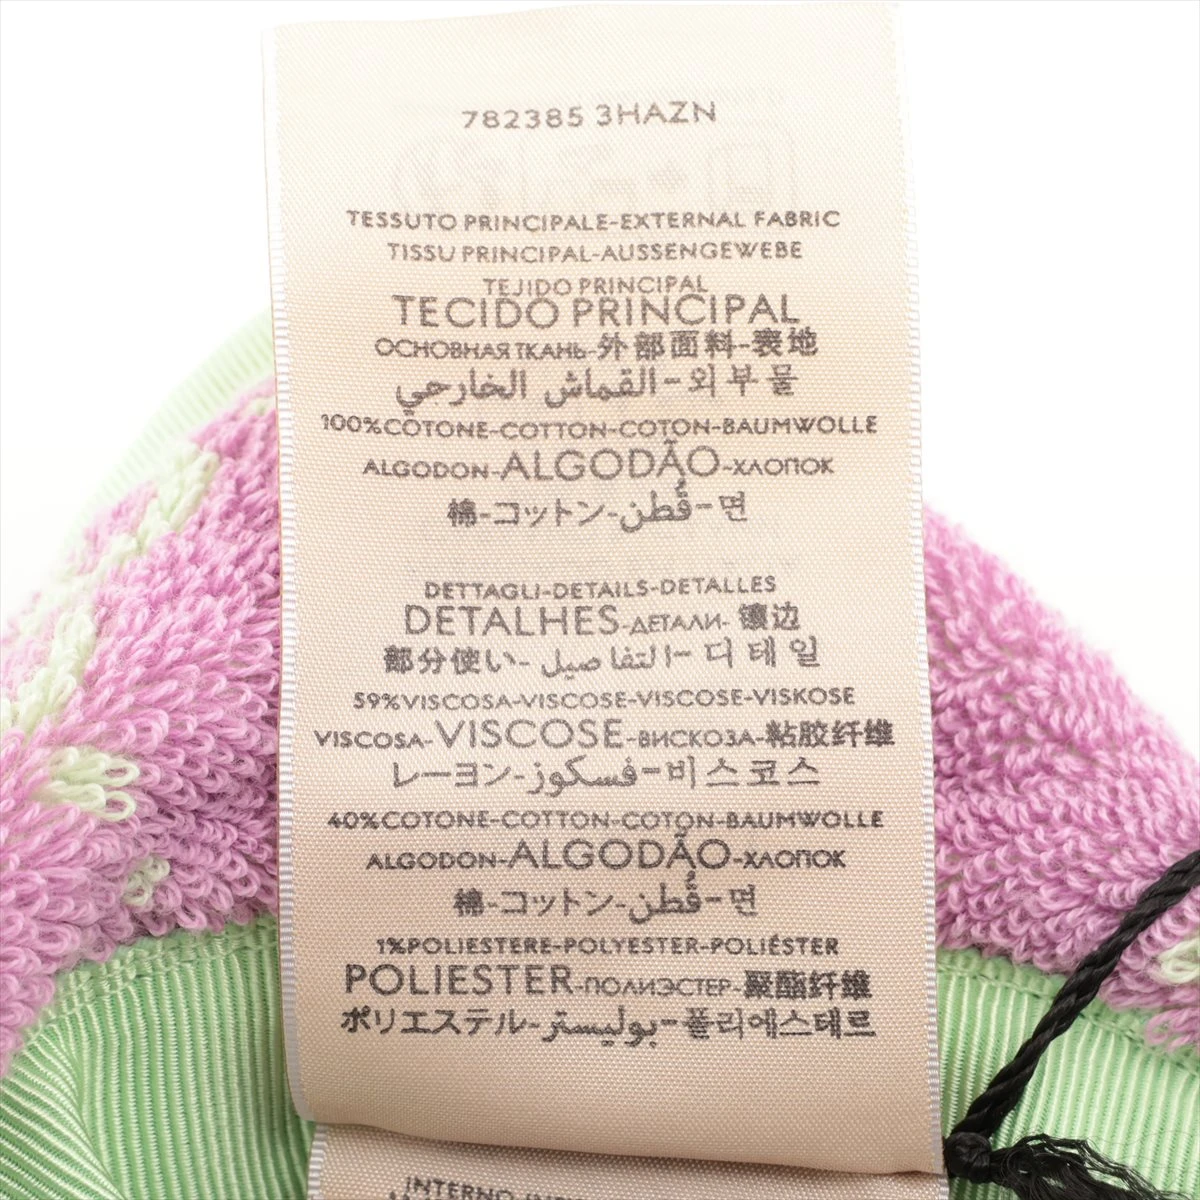 782385 3HAZN
TESSUTO PRINCIPALE-EXTERNAL FABRIC
TISSU PRINCIPAL-AUSSENGEWEBE
TEJIDO PRINCIPAL
TECIDO PRINCIPAL
ОСНОВНАЯ ТКАНЬ-外部面料-表地
القماش الخارجي-외부물
100%COTONE-COTTON-COTON-BAUMWOLLE
ALGODON-ALGODÃO-ХЛОПОК
棉-コットン-قُطن-면
DETTAGLI-DETAILS-DETALLES
DETALHES-ДЕТАЛИ-镶边
部分使い-التفاصيل-디테일
59%VISCOSA-VISCOSE-VISCOSE-VISKOSE
VISCOSA-VISCOSE-ВИСКОЗА-粘胶纤维
レーヨン-فسكوز-비스코스
40%COTONE-COTTON-COTON-BAUMWOLLE
ALGODON-ALGODÃO-ХЛОПОК
棉-コットン-قُطن-면
1%POLIESTERE-POLYESTER-POLIÉSTER
POLIESTER-ПОЛИЭСТЕР-聚酯纤维
ポリエステル-بوليستر-폴리에스테르
INTERNO